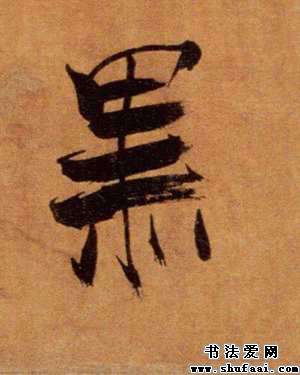 黑
书法爱网
www.shufaai.com